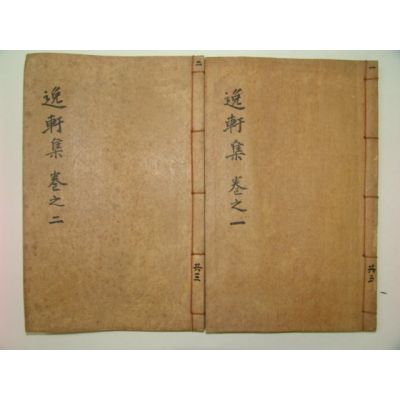 一
逸軒集 卷之一
共三
二
逸軒集 卷之二
共三